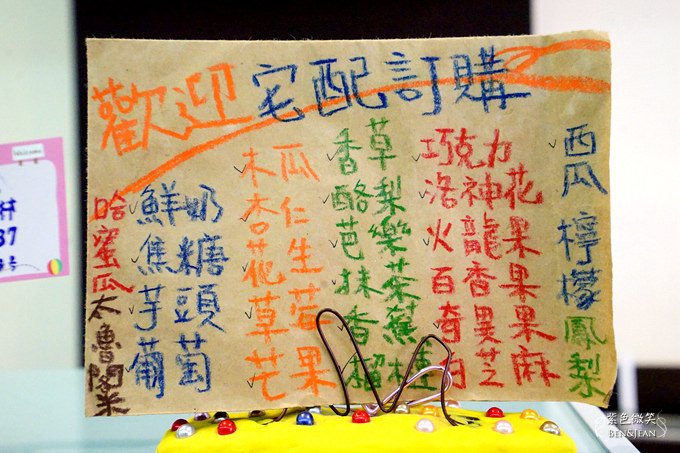 歡迎宅配訂購
哈蜜瓜
太魯閣米
鮮奶
焦糖
芋頭
葡萄
木瓜
杏仁
花生
草莓
芒果
香草
酪梨
芭樂
抹茶
香蕉
榴槤
巧克力
洛神花
火龍果
百香果
奇異果
白芝麻
西瓜
檸檬
鳳梨
紫色微笑
BEN&JEAN